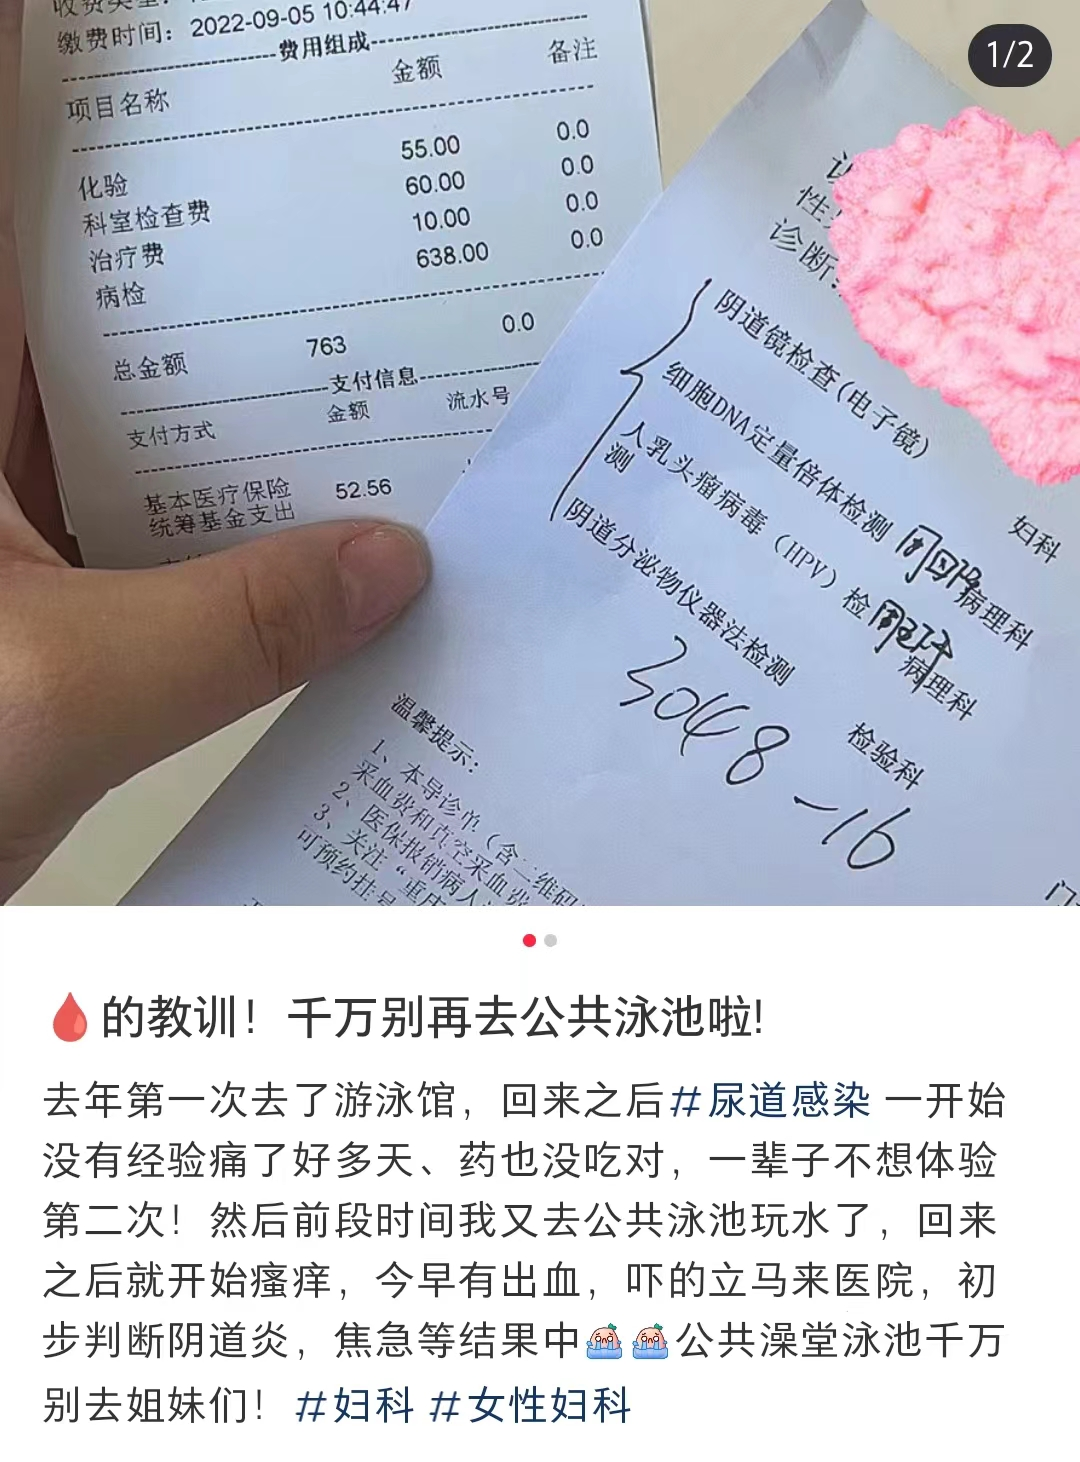 1/2
缴费时间：2022-09-05 10:44:47
费用组成
项目名称 金额 备注
化验 55.00 0.0
科室检查费 60.00 0.0
治疗费 10.00 0.0
病检 638.00 0.0
总金额 763 0.0
支付信息
支付方式 金额 流水号
基本医疗保险 52.56
统筹基金支出
性
诊断
阴道镜检查(电子镜) 妇科
细胞DNA定量倍体检测 病理科
人乳头瘤病毒（HPV）检 病理科
测
阴道分泌物仪器法检测 检验科
温馨提示：
1、本导诊单（含二维码
采血费和真空采血费
2、医保报销病人
3、关注“重庆
可预约挂号
🩸的教训！千万别再去公共泳池啦!
去年第一次去了游泳馆，回来之后#尿道感染 一开始
没有经验痛了好多天、药也没吃对，一辈子不想体验
第二次！然后前段时间我又去公共泳池玩水了，回来
之后就开始瘙痒，今早有出血，吓的立马来医院，初
步判断阴道炎，焦急等结果中 公共澡堂泳池千万
别去姐妹们！#妇科 #女性妇科